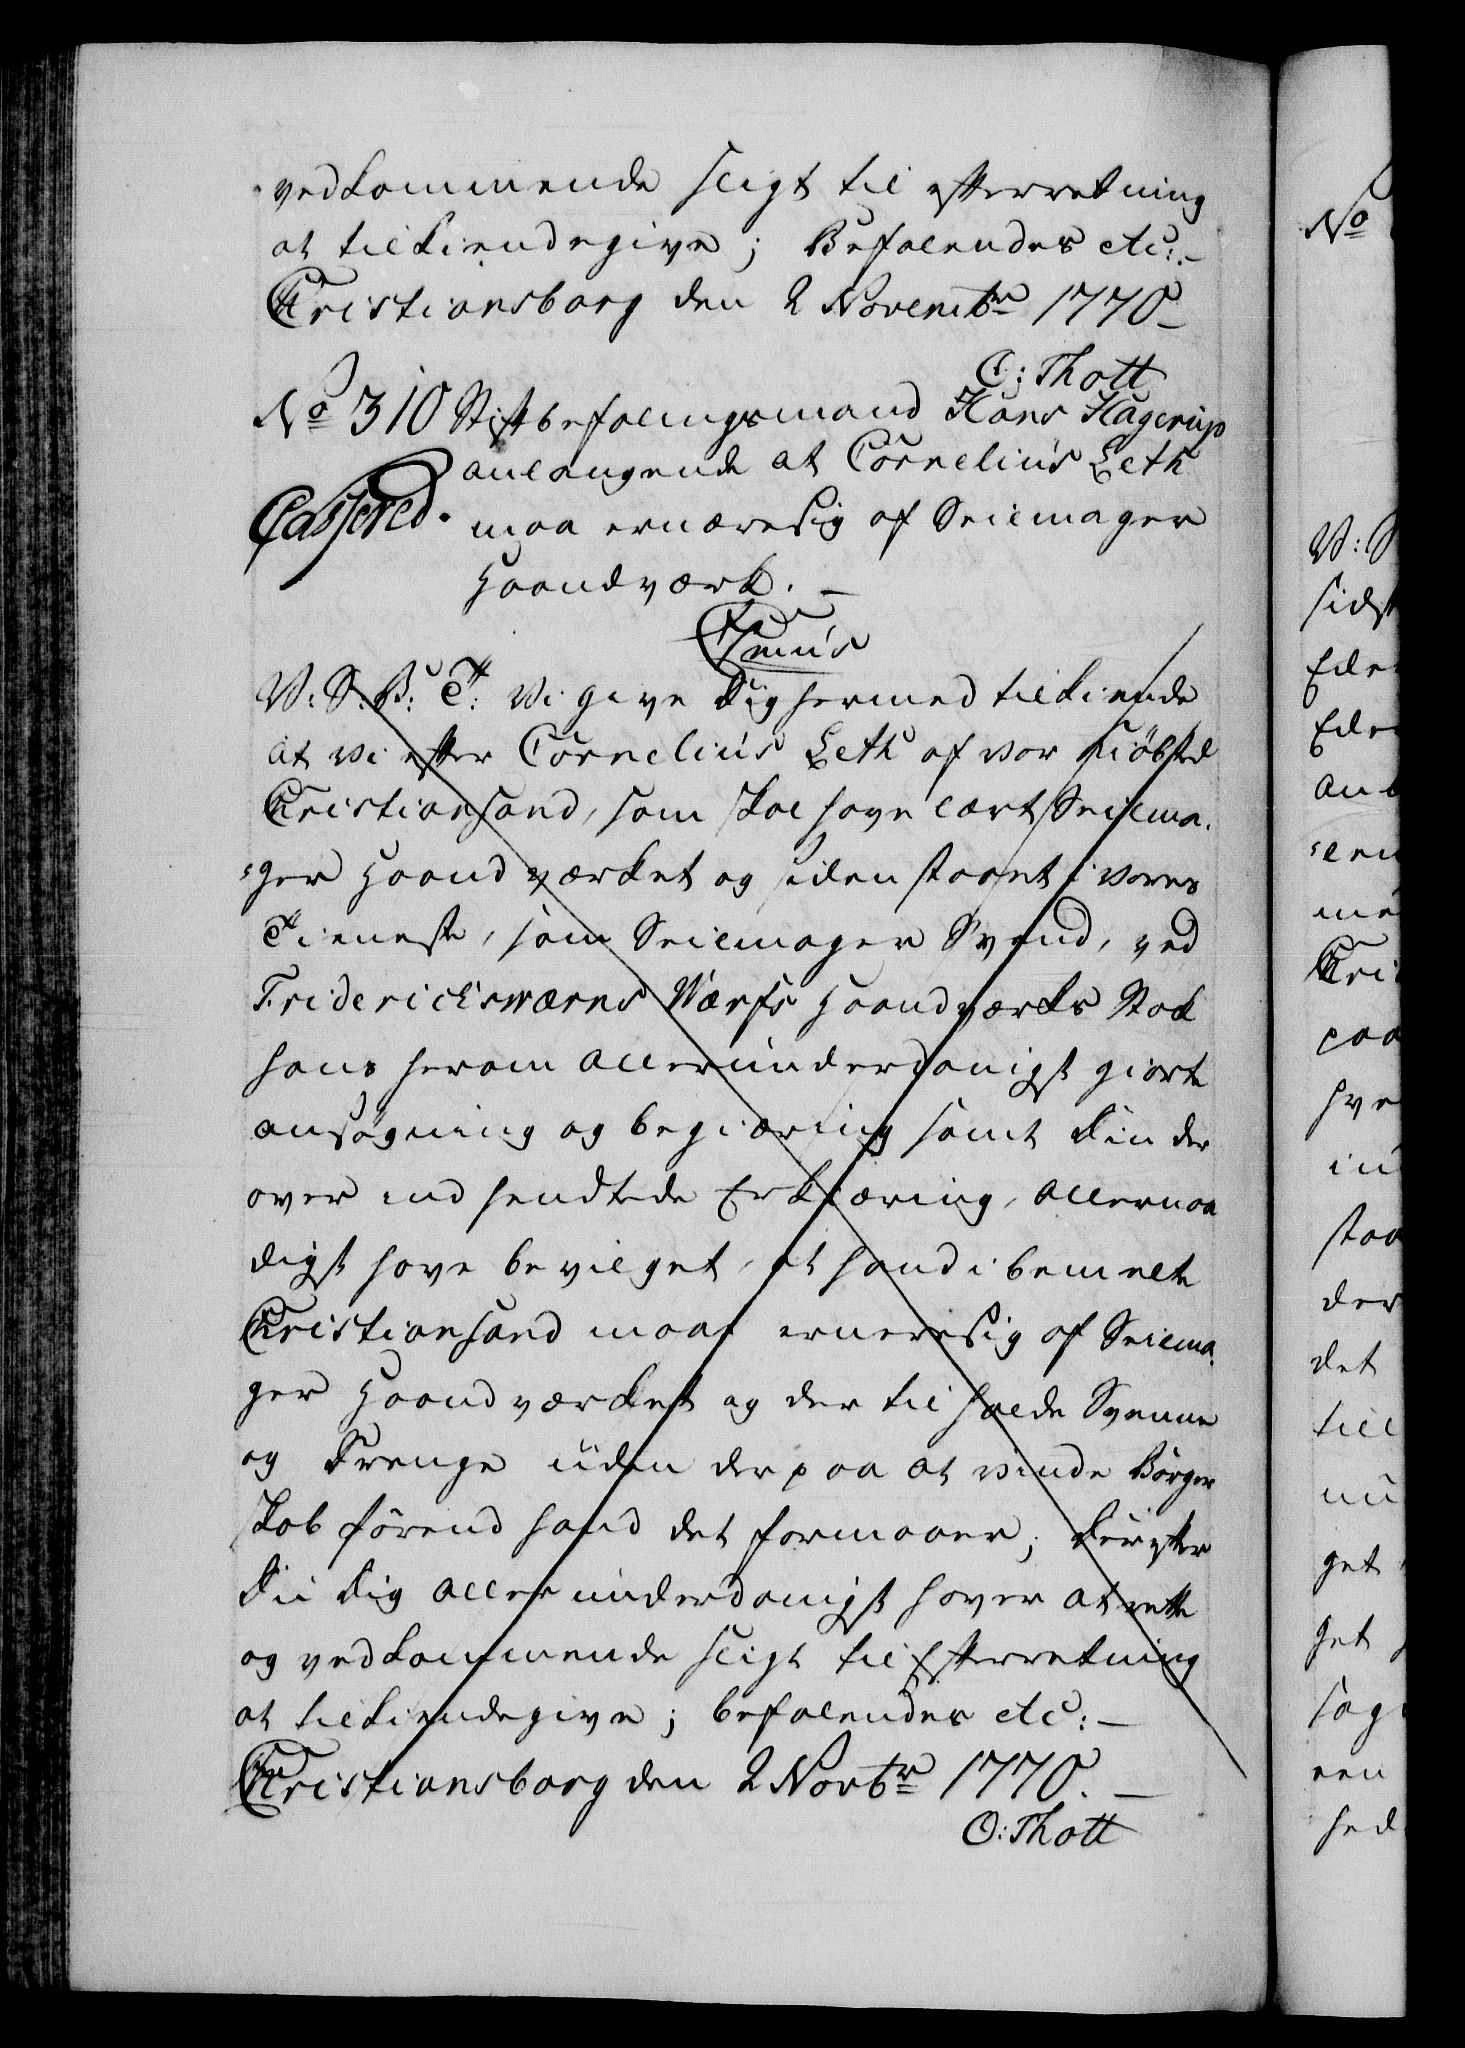 vedkommende sligt til efterretning
at tilkiendegive; Befalendes etc:.-
Christiansborg den 2 Novembr 1770-
O: Thott
No 310 Stiftbefalingsmand Hans Hagerup
anlangende at Cornelius Leth
Casseret. maa ernæresig af Seilmager
Haandværk. -
C7mus
V: S: B: T: Vi give dig hermed tilkiende
at vi efter Cornelius Leth af vor Kiöbsted
Christiansand, som skal have lært Seilma-
-ger Haandværket og siden staaet i vores
Tieneste, som Seilmager Svend, ved
Friderichsværns Værfs Haandværks Stok
hans herom allerunderdanigst giorte
ansøgning og begiæring samt din der
over indsendtede Erklæring, allernaa
digst have bevilget, at hand i bemelte
Christiansand maae erneresig af Seilma-
ger Haandværket og der til holde Svenne
og Drenge uden derpaa at vinde Börger
skab förend hand det formaaer; Derefter
du dig allerunderdanigst haver at rette
og vedkommende sligt til Efterretning
at tilkiendegive; befalendes etc: -
Christiansborg den 2 Novbr 1770. -
O: Thott
No
V: S
sidst
Ede
Ede
an
len
me
Chri
paa
hve
in
staa
der
det
till
nu
get
het
sag
een
hed